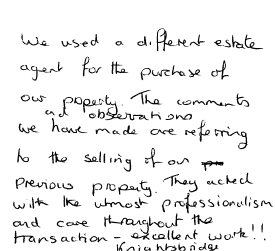 We used a different estate
agent for the purchase of
our poperty. The comments
and observations
we have made are referring
to the selling of our
previous property. They acted
with the utmost professionalism
and care throughout the
transaction - excellent work!!
Knightsbridge